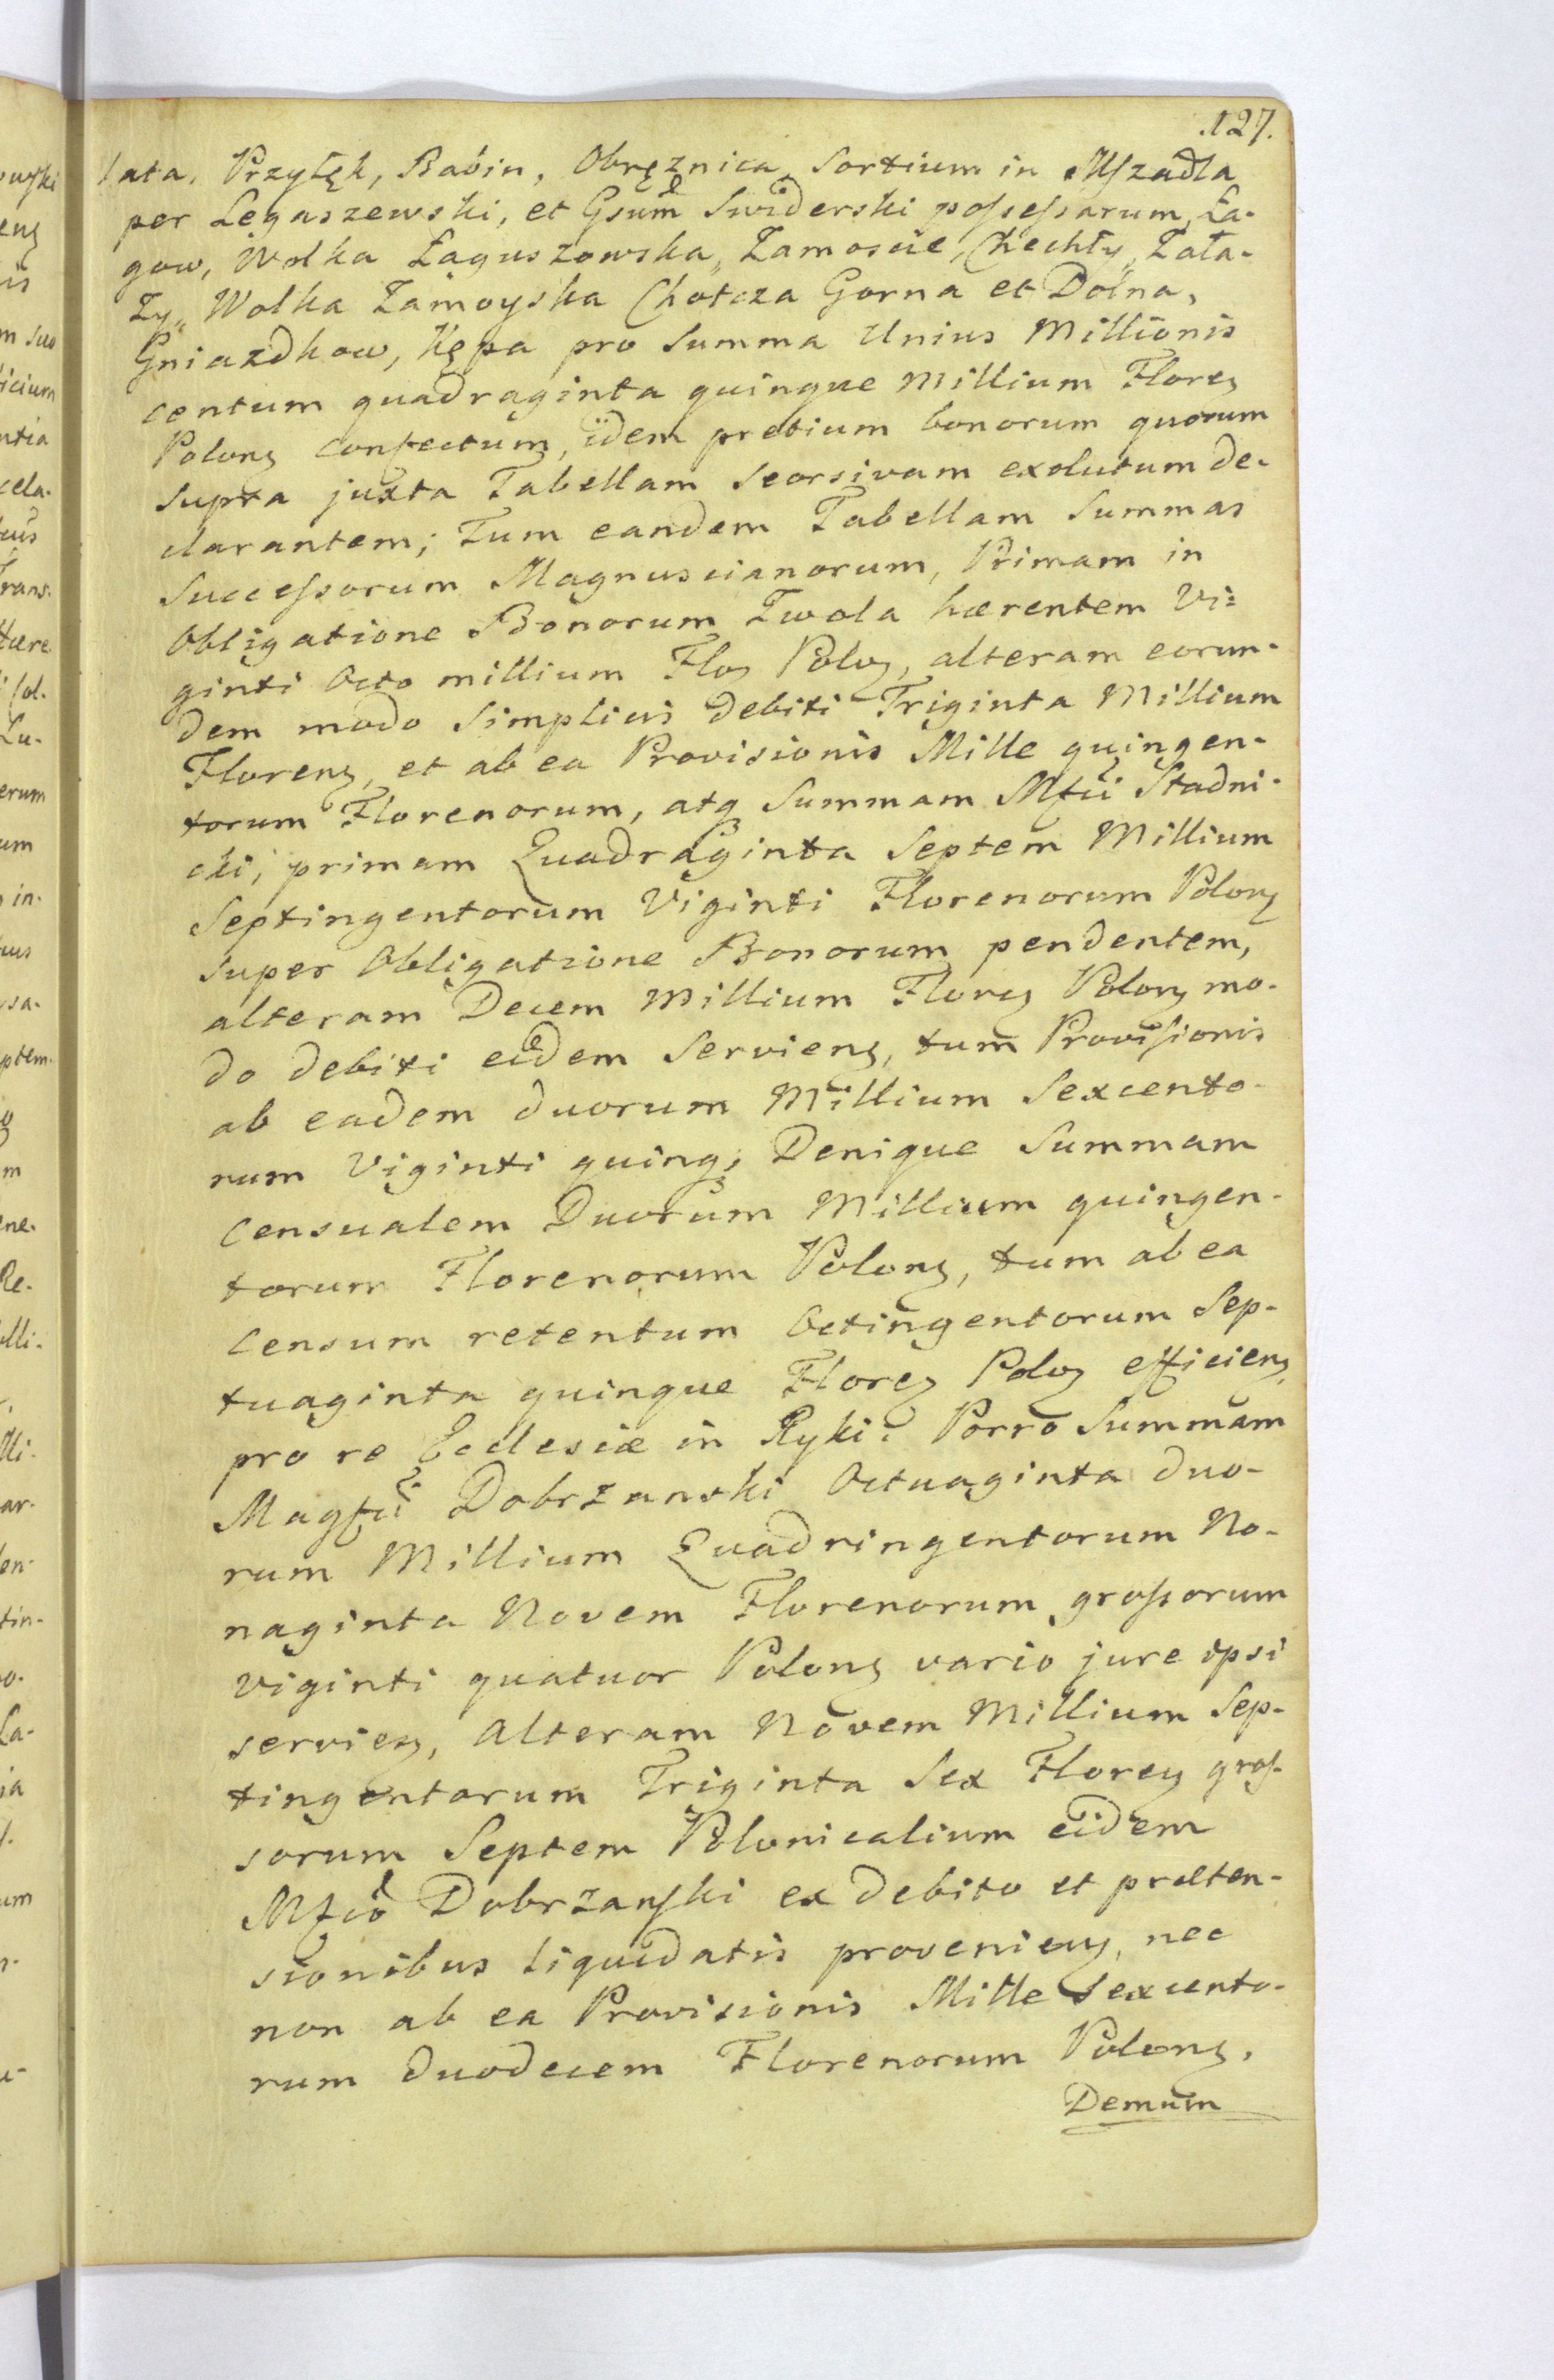 127.
lata, Przyłęk, Babin, Obręznica, Sortium in Mszadla
per Łęgaszewski, et Gsum Swiderski possessarum, Ła-
gow, Wolka Łaguszowska, Zamoscie, Chechły, Zała-
zy, Wolka Zamoyska Chotcza Gorna et Dolna,
Gniazdkow, Kępa pro Summa Unius Millionis
centum quadraginta quinque Millium Floreꝫ
Polonꝫ confectum, idem pretium bonorum quorum
supra juxta Tabellam seorsivam exolutum de-
clarantem; Tum eandem Tabellam Summas
Successorum Magnuscianorum, Primam in
Obligatione Bonorum Zwola hærentem Vi=
ginti Octo millium Floꝫ Poloꝫ, alteram eorun-
dem modo Simplicis debiti Triginta Millium
Florenꝫ, et ab ea Provisionis Mille quingen-
torum Florenorum, atqꝫ Summam Mfci Stadni-
cki, primam Quadraginta Septem Millium
Septingentorum Viginti Florenorum Polonꝫ
super Obligatione Bonorum pendentem,
alteram Decem Millium Floreꝫ Polonꝫ mo-
do debiti eidem Servienꝫ, tum Provisionis
ab eadem duorum Millium Sexcento-
rum Viginti quinqꝫ, Denique Summam
Censualem Duorum Millium quingen-
torum Florenorum Polonꝫ, tum ab ea
Censum retentum Octingentorum Sep-
tuaginta quinque Floreꝫ Poloꝫ efficienꝫ
pro re Ecclesiæ in Ryki. Porro Summam
Magfci Dobrzanski Octuaginta duo-
rum Millium Quadringentorum No-
naginta Novem Florenorum grossorum
viginti quatuor Polonꝫ vario jure ipsi
servieꝫ, Alteram Novem Millium Sep-
tingentorum Triginta Sex Floreꝫ gros-
sorum Septem Polonicalium eidem
Mfco Dobrzanski ex debito et præten-
sionibus liquidatis provenienꝫ, nec
non ab ea Provisionis Mille Sexcento-
rum duodecem Florenorum Polonꝫ.
Demum